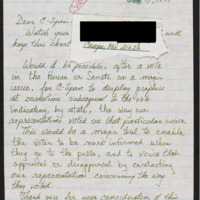 Dear C-Span:
Watch your
will
keep this short.
Would it be possible, after a vote
in the House or Senate on a major
issue, for C-Span to display graphics
at sometime subsequent to the vote
indicating, by state, the way our
representatives voted on that particular issue.
This would be a major tool to enable
the voter to be more informed when
they go to the polls, and to voice their
approval or disapproval by contacting
our representatives concerning the way
they voted.
Thank you for your consideration of this